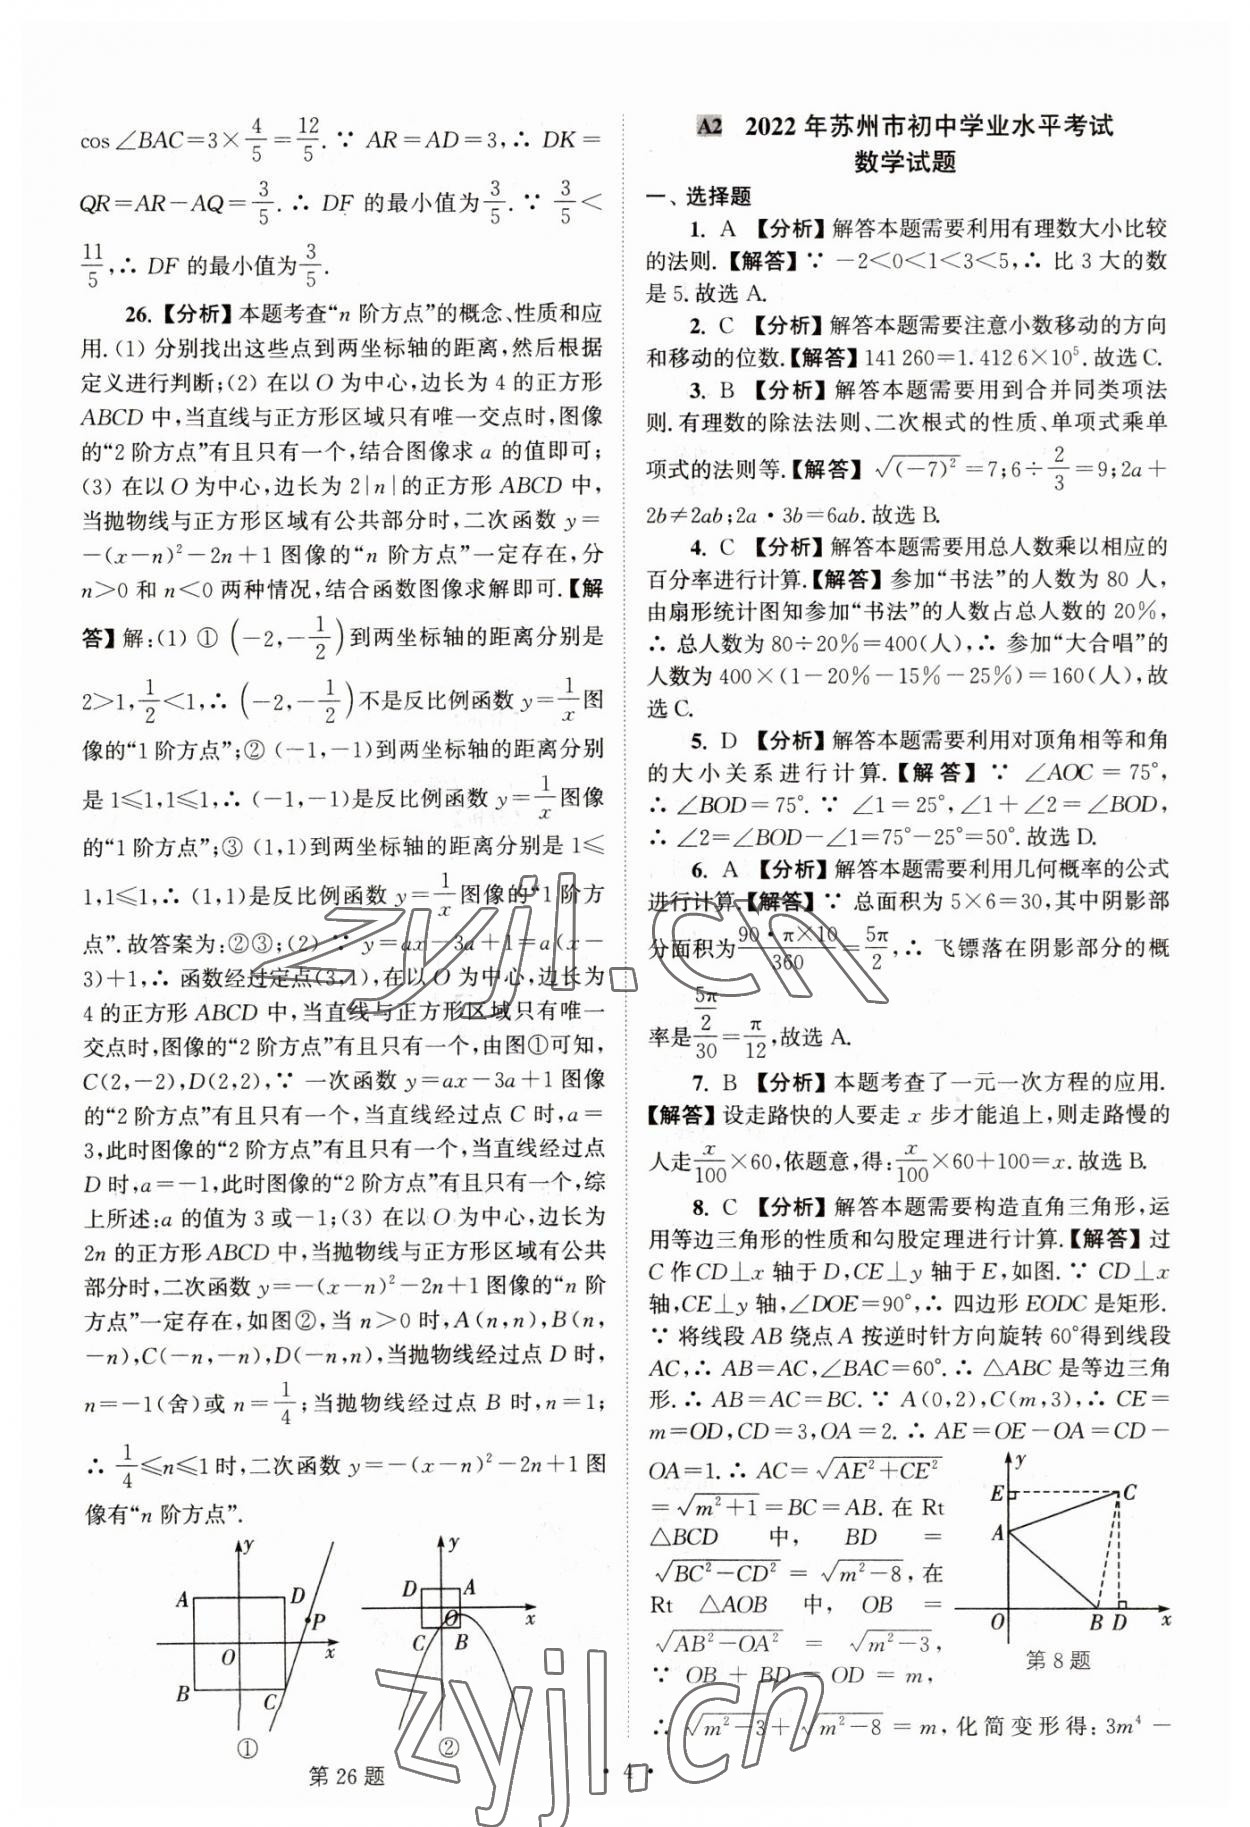 cos∠BAC=3×4/5=12/5.∵ AR=AD=3,∴ DK=
QR=AR-AQ=3/5.∴ DF 的最小值为3/5.∵ 3/5<
11/5,∴ DF 的最小值为3/5.
26.【分析】本题考查“n 阶方点”的概念、性质和应
用.(1) 分别找出这些点到两坐标轴的距离,然后根据
定义进行判断;(2) 在以 O 为中心,边长为 4 的正方形
ABCD 中,当直线与正方形区域只有唯一交点时,图像
的“2 阶方点”有且只有一个,结合图像求 a 的值即可;
(3) 在以 O 为中心,边长为 2|n|的正方形 ABCD 中,
当抛物线与正方形区域有公共部分时,二次函数 y=
-(x-n)²-2n+1 图像的“n 阶方点”一定存在,分
n>0 和 n<0 两种情况,结合函数图像求解即可.【解
答】解:(1) ① (-2,-1/2)到两坐标轴的距离分别是
2>1,1/2<1,∴ (-2,-1/2)不是反比例函数 y=1/x图
像的“1 阶方点”;② (-1,-1)到两坐标轴的距离分别
是 1≤1,1≤1,∴ (-1,-1)是反比例函数 y=1/x图像
的“1 阶方点”;③ (1,1)到两坐标轴的距离分别是 1≤
1,1≤1,∴ (1,1)是反比例函数 y=1/x图像的“1 阶方
点”.故答案为:②③;(2) ∵ y=ax-3a+1=a(x-
3)+1,∴ 函数经过定点(3,1),在以 O 为中心,边长为
4 的正方形 ABCD 中,当直线与正方形区域只有唯一
交点时,图像的“2 阶方点”有且只有一个,由图①可知,
C(2,-2),D(2,2),∵ 一次函数 y=ax-3a+1 图像
的“2 阶方点”有且只有一个,当直线经过点 C 时,a=
3,此时图像的“2 阶方点”有且只有一个,当直线经过点
D 时,a=-1,此时图像的“2 阶方点”有且只有一个,综
上所述:a 的值为 3 或-1;(3) 在以 O 为中心,边长为
2n 的正方形 ABCD 中,当抛物线与正方形区域有公共
部分时,二次函数 y=-(x-n)²-2n+1 图像的“n 阶
方点”一定存在,如图②,当 n>0 时,A(n,n),B(n,
-n),C(-n,-n),D(-n,n),当抛物线经过点 D 时,
n=-1(舍)或 n=1/4;当抛物线经过点 B 时,n=1;
∴ 1/4≤n≤1 时,二次函数 y=-(x-n)²-2n+1 图
像有“n 阶方点”.
y
A
D
P
O
x
B
C
①
y
D
A
O
x
C
B
②
第 26 题
A2 2022 年苏州市初中学业水平考试
数学试题
一、选择题
1. A 【分析】解答本题需要利用有理数大小比较
的法则.【解答】∵ -2<0<1<3<5,∴ 比 3 大的数
是 5.故选 A.
2. C 【分析】解答本题需要注意小数移动的方向
和移动的位数.【解答】141 260=1.412 6×10⁵.故选 C.
3. B 【分析】解答本题需要用到合并同类项法
则.有理数的除法法则、二次根式的性质、单项式乘单
项式的法则等.【解答】√(-7)²=7;6÷2/3=9;2a+
2b≠2ab;2a·3b=6ab.故选 B.
4. C 【分析】解答本题需要用总人数乘以相应的
百分率进行计算.【解答】参加“书法”的人数为 80 人,
由扇形统计图知参加“书法”的人数占总人数的 20%,
∴ 总人数为 80÷20%=400(人),∴ 参加“大合唱”的
人数为 400×(1-20%-15%-25%)=160(人),故
选 C.
5. D 【分析】解答本题需要利用对顶角相等和角
的大小关系进行计算.【解答】∵ ∠AOC=75°,
∴ ∠BOD=75°.∵ ∠1=25°,∠1+∠2=∠BOD,
∴ ∠2=∠BOD-∠1=75°-25°=50°.故选 D.
6. A 【分析】解答本题需要利用几何概率的公式
进行计算.【解答】∵ 总面积为 5×6=30,其中阴影部
分面积为90·π×10/360=5π/2,∴ 飞镖落在阴影部分的概
率是(5π/2)/30=π/12,故选 A.
7. B 【分析】本题考查了一元一次方程的应用.
【解答】设走路快的人要走 x 步才能追上,则走路慢的
人走x/100×60,依题意,得:x/100×60+100=x.故选 B.
8. C 【分析】解答本题需要构造直角三角形,运
用等边三角形的性质和勾股定理进行计算.【解答】过
C 作 CD⊥x 轴于 D,CE⊥y 轴于 E,如图.∵ CD⊥x
轴,CE⊥y 轴,∠DOE=90°,∴ 四边形 EODC 是矩形.
∵ 将线段 AB 绕点 A 按逆时针方向旋转 60°得到线段
AC,∴ AB=AC,∠BAC=60°.∴ △ABC 是等边三角
形.∴ AB=AC=BC.∵ A(0,2),C(m,3),∴ CE=
m=OD,CD=3,OA=2.∴ AE=OE-OA=CD-
OA=1.∴ AC=√AE²+CE²
=√m²+1=BC=AB.在 Rt
△BCD 中, BD =
√BC²-CD² = √m²-8,在
Rt △AOB 中, OB =
√AB²-OA² = √m²-3,
∵ OB + BD = OD = m,
∴ √m²-3+√m²-8=m,化简变形得:3m⁴-
y
E
C
A
O
B
D
x
第 8 题
· 4 ·
zyjl.cn
zyjl.cn